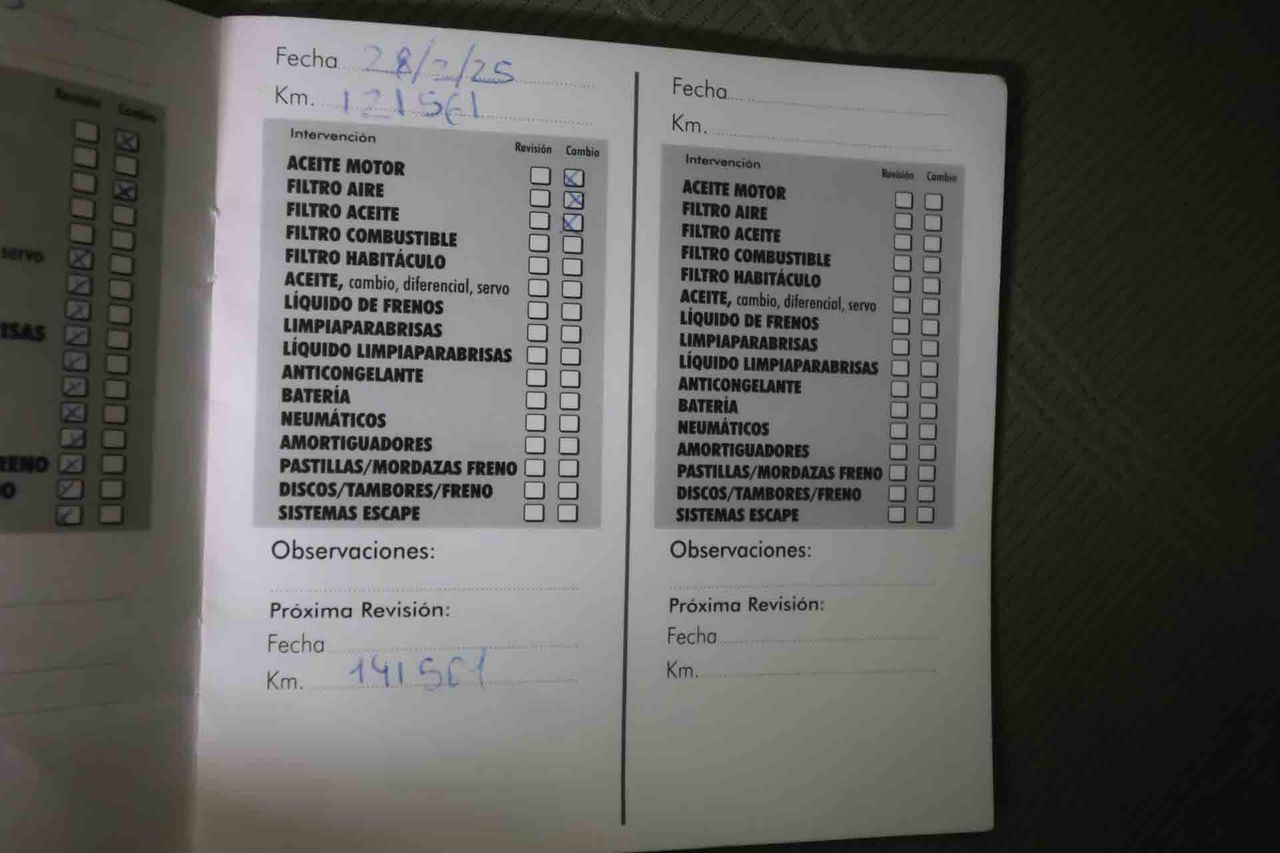 Revisión Cambio
servo
ISAS
RENO
O
Fecha 28/2/25
Km. 121561
Intervención Revisión Cambio
ACEITE MOTOR
FILTRO AIRE
FILTRO ACEITE
FILTRO COMBUSTIBLE
FILTRO HABITÁCULO
ACEITE, cambio, diferencial, servo
LÍQUIDO DE FRENOS
LIMPIAPARABRISAS
LÍQUIDO LIMPIAPARABRISAS
ANTICONGELANTE
BATERÍA
NEUMÁTICOS
AMORTIGUADORES
PASTILLAS/MORDAZAS FRENO
DISCOS/TAMBORES/FRENO
SISTEMAS ESCAPE
Observaciones:
Próxima Revisión:
Fecha
Km. 141561
Fecha
Km.
Intervención Revisión Cambio
ACEITE MOTOR
FILTRO AIRE
FILTRO ACEITE
FILTRO COMBUSTIBLE
FILTRO HABITÁCULO
ACEITE, cambio, diferencial, servo
LÍQUIDO DE FRENOS
LIMPIAPARABRISAS
LÍQUIDO LIMPIAPARABRISAS
ANTICONGELANTE
BATERÍA
NEUMÁTICOS
AMORTIGUADORES
PASTILLAS/MORDAZAS FRENO
DISCOS/TAMBORES/FRENO
SISTEMAS ESCAPE
Observaciones:
Próxima Revisión:
Fecha
Km.